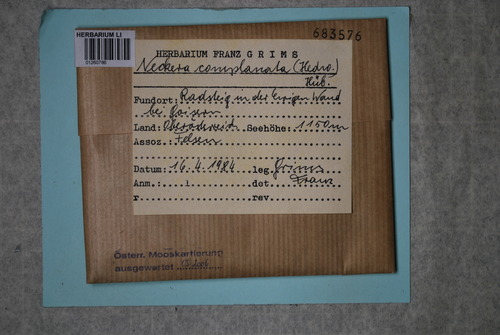 HERBARIUM LI
683576
HERBARIUM FRANZ GRIMS
Neckera complanata (Hedw.)
Hüb.
Fundort: Radsteig in der Ewigen Wand
bei Goisern
Land: Oberösterreich Seehöhe: 1150m
Assoz. Felsen
Datum: 16.4.1984 leg. Grims
Anm.: det. Franz
r rev.
Österr. Mooskartierung
ausgewertet